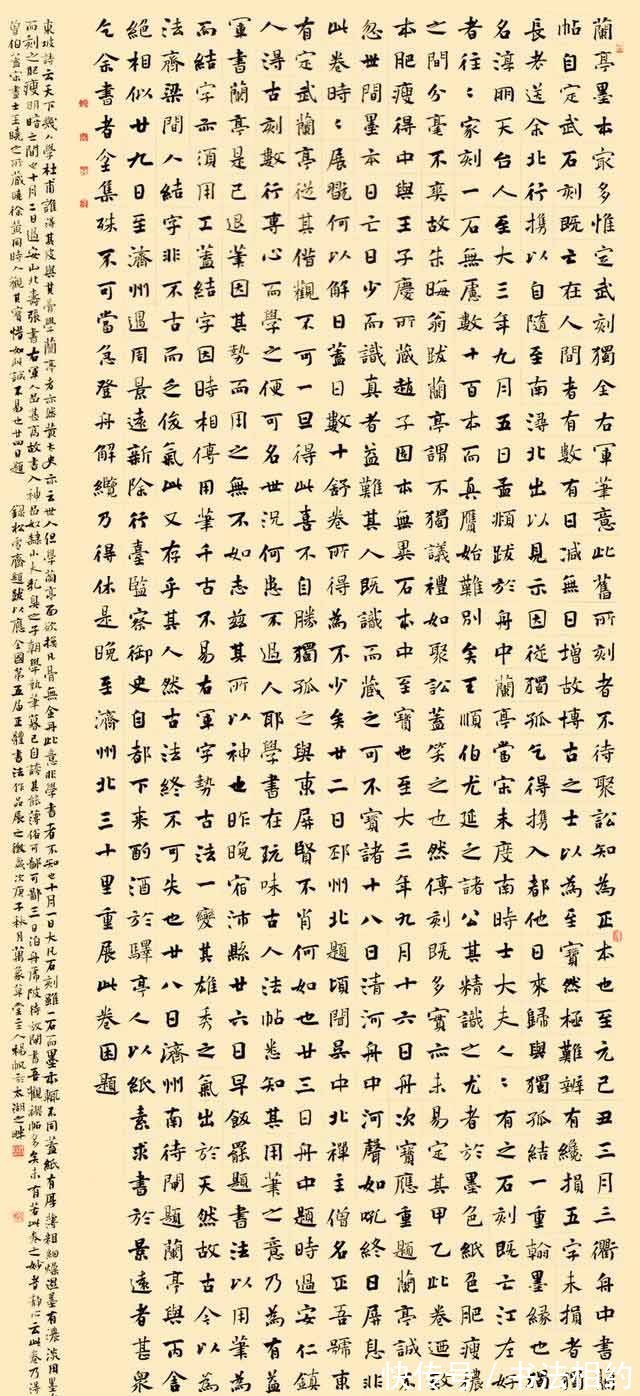 蘭亭墨本最多惟定武刻獨全右軍筆意此舊所刻者不待聚訟知為正本也至元己丑三月三衢舟中書
帖自定武石刻既亡在人間者有數有日減無日增故博古之士以為至寶然極難辨有纔損五字未損者獨
長老送余北行携以自隨至南潯北出以見示因從獨孤乞得携入都他日來歸與獨孤結一重翰墨緣也獨
名淳朋天台人至大三年九月五日孟頫跋於舟中蘭亭當宋未度南時士大夫人〻有之石刻既亡江左好
者往〻家刻一石無慮數十百本而真贋始難別矣王順伯尤延之諸公其精識之尤者於墨色紙色肥瘦穠
之間分毫不爽故朱晦翁跋蘭亭謂不獨議禮如聚訟蓋笑之也然傳刻既多實亦未易定其甲乙此卷迺
本肥瘦得中與王子慶所藏趙子固本無異石本中至寶也至大三年九月十六日舟次寶應重題蘭亭誠不
忽世間墨本日亡日少而識真者益難其人既識而藏之可不寶諸十八日清河舟中河聲如吼終日屏息非
此卷時〻展翫何以解日蓋日數十舒卷所得為不少矣廿二日邳州北題頃聞吳中北禪主僧名正吾號東
有定武蘭亭從其借觀不可一旦得此喜不自勝獨孤之與東屏賢不肖何如也廿三日舟中題時過安仁鎮
人得古刻數行專心而學之便可名世況何患不過人耶學書在玩味古人法帖悉知其用筆之意乃為有
軍書蘭亭是已退筆因其勢而用之無不如志茲其所以神也昨晚宿沛縣廿六日早飯罷題書法以用筆為
而結字亦須用工蓋結字因時相傳用筆千古不易右軍字勢古法一變其雄秀之氣出於天然故古今以為
法齊梁間人結字非不古而乏俊氣此又存乎其人然古法終不可失也廿八日濟州南待閘題蘭亭與丙舍
絕相似廿九日至濟州遇周景遠新除行臺監察御史自都下來酌酒於驛亭人以紙素求書於景遠者甚衆
乞余書者坌集殊不可當急登舟解纜乃得休是晚至濟州北三十里重展此卷因題
東坡詩云天下幾人學杜甫誰得其皮與其骨學蘭亭者亦然黃太史亦云世人但學蘭亭面欲換凡骨無金丹此意非學書者不知也十月一日大凡石刻雖一石而墨本輒不同蓋紙有厚薄粗細燥濕墨有濃淡用墨
而刻之肥瘦明暗之間也十月二日過安山北壽張書右軍人品甚高故書入神品奴隸小夫乳臭之子朝學執筆暮已自誇其能薄俗可鄙可鄙三日泊舟荊陂待放閘書吾觀禊帖多矣未有若此卷之妙者
曾伯蓋宋畫士王曉之所藏 同時入觀其寶惜如此誠不易也廿四日題 錄松雪齋題跋以應全國第五届正體書法作品展之徵歲次庚子秋月 楊帆於太湖之畔
快传号/书法相约